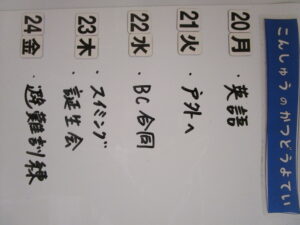 こんしゅうのかつどうよてい
20 月 ・英語
21 火 ・戸外へ
22 水 ・BC合同
23 木 ・スイミング
・誕生会
24 金 ・避難訓練